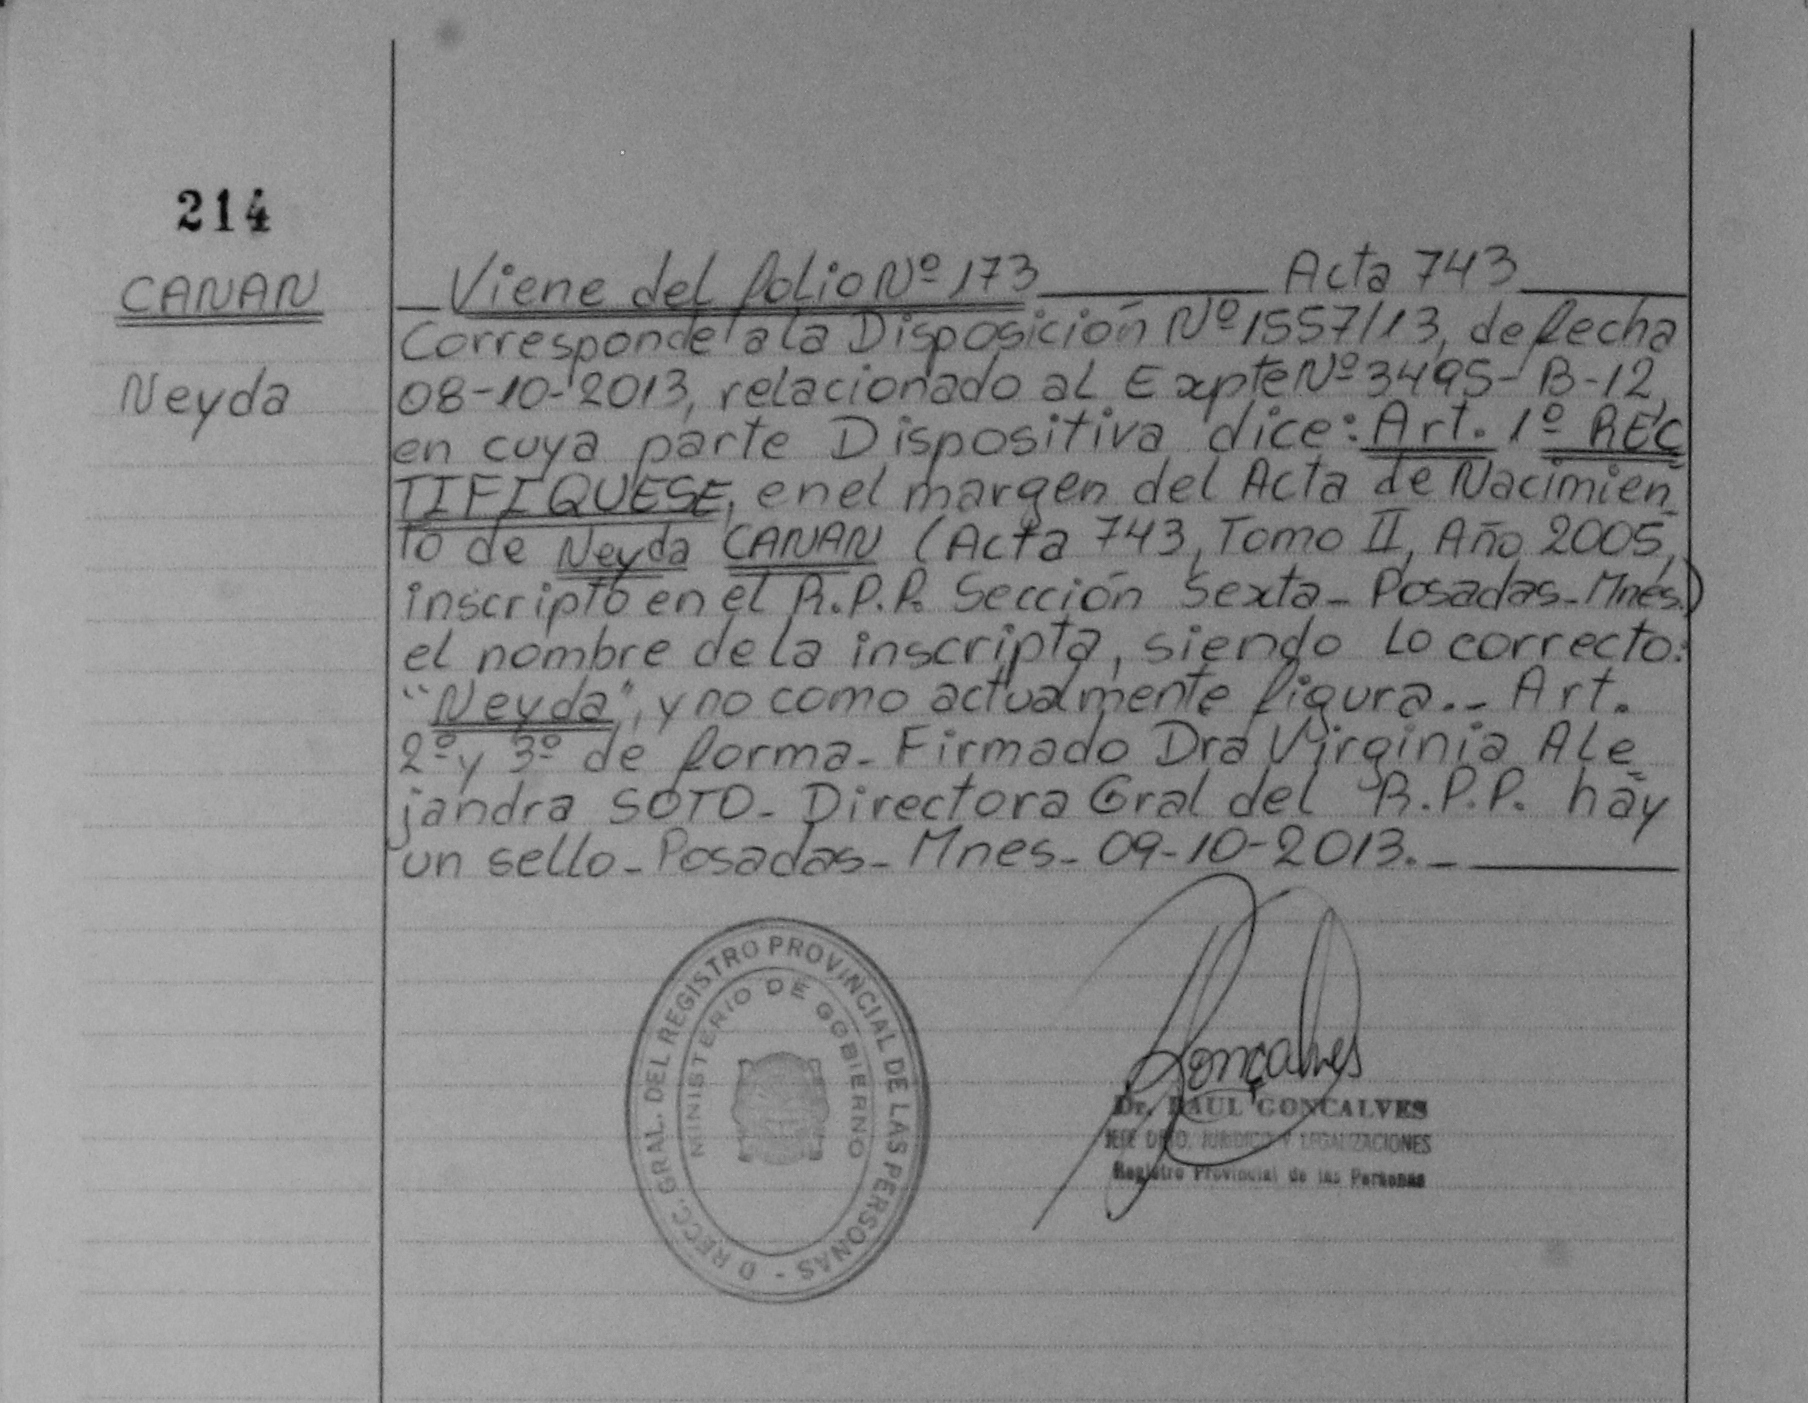 214
CANAN
Neyda
Viene del folio Nº 173 Acta 743
Corresponde a la Disposición Nº 1557/13, de fecha
08-10-2013, relacionado al Expte Nº 3495-B-12,
en cuya parte Dispositiva dice: Art. 1º REC
TIFIQUESE, en el margen del Acta de Nacimien
to de Neyda CANAN (Acta 743, Tomo II, Año 2005,
inscripto en el R.P.P. Sección Sexta - Posadas - Mnes.)
el nombre de la inscripta, siendo lo correcto:
"Neyda", y no como actualmente figura.- Art.
2º y 3º de forma - Firmado Dra Virginia Ale
jandra SOTO - Directora Gral del R.P.P. hay
un sello - Posadas - Mnes - 09-10-2013.-
D RECC. GRAL. DEL REGISTRO PROVINCIAL DE LAS PERSONAS -
MINISTERIO DE GOBIERNO
Gonçalves
Dr. RAUL GONCALVES
JEFE DPTO. JURIDICO Y LEGALIZACIONES
Registro Provincial de las Personas